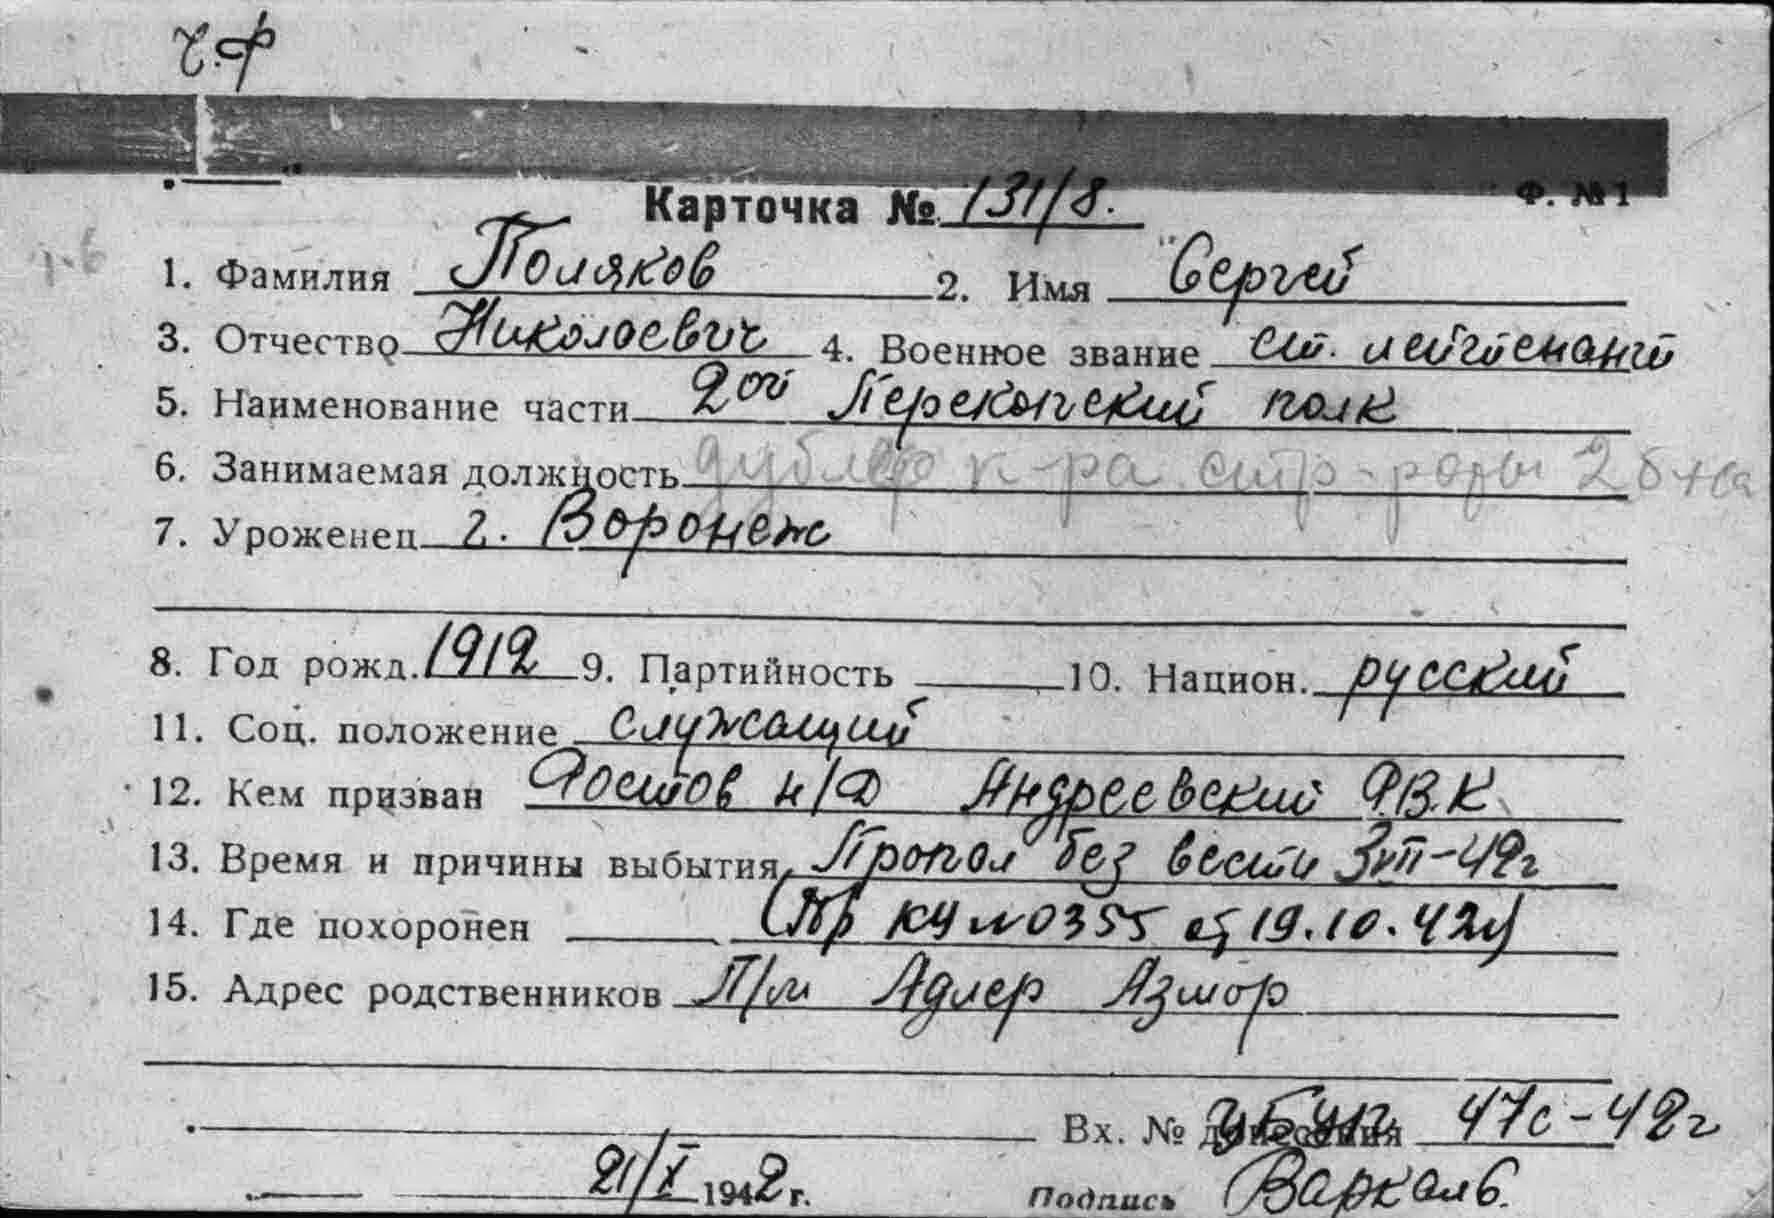 Ч.Ф
Ф. №1
Карточка № 131/8.
1. Фамилия Поляков 2. Имя Сергей
3. Отчество Николаевич 4. Военное звание ст. лейтенант
5. Наименование части 2ой Перекопский полк
6. Занимаемая должность к-ра стр-роты 2 б-на
7. Уроженец г. Воронеж
8. Год рожд. 1912 9. Партийность 10. Национ. русский
11. Соц. положение служащий
12. Кем призван Ростов н/Д Андреевский Р.В.К
13. Время и причины выбытия Пропал без вести 42г
14. Где похоронен (Пр КЧ №0355 от 19.10.42г)
15. Адрес родственников П/м Адлер Азмор
Вх. № донесения 47с-42г
21/X 1942 г. Подпись